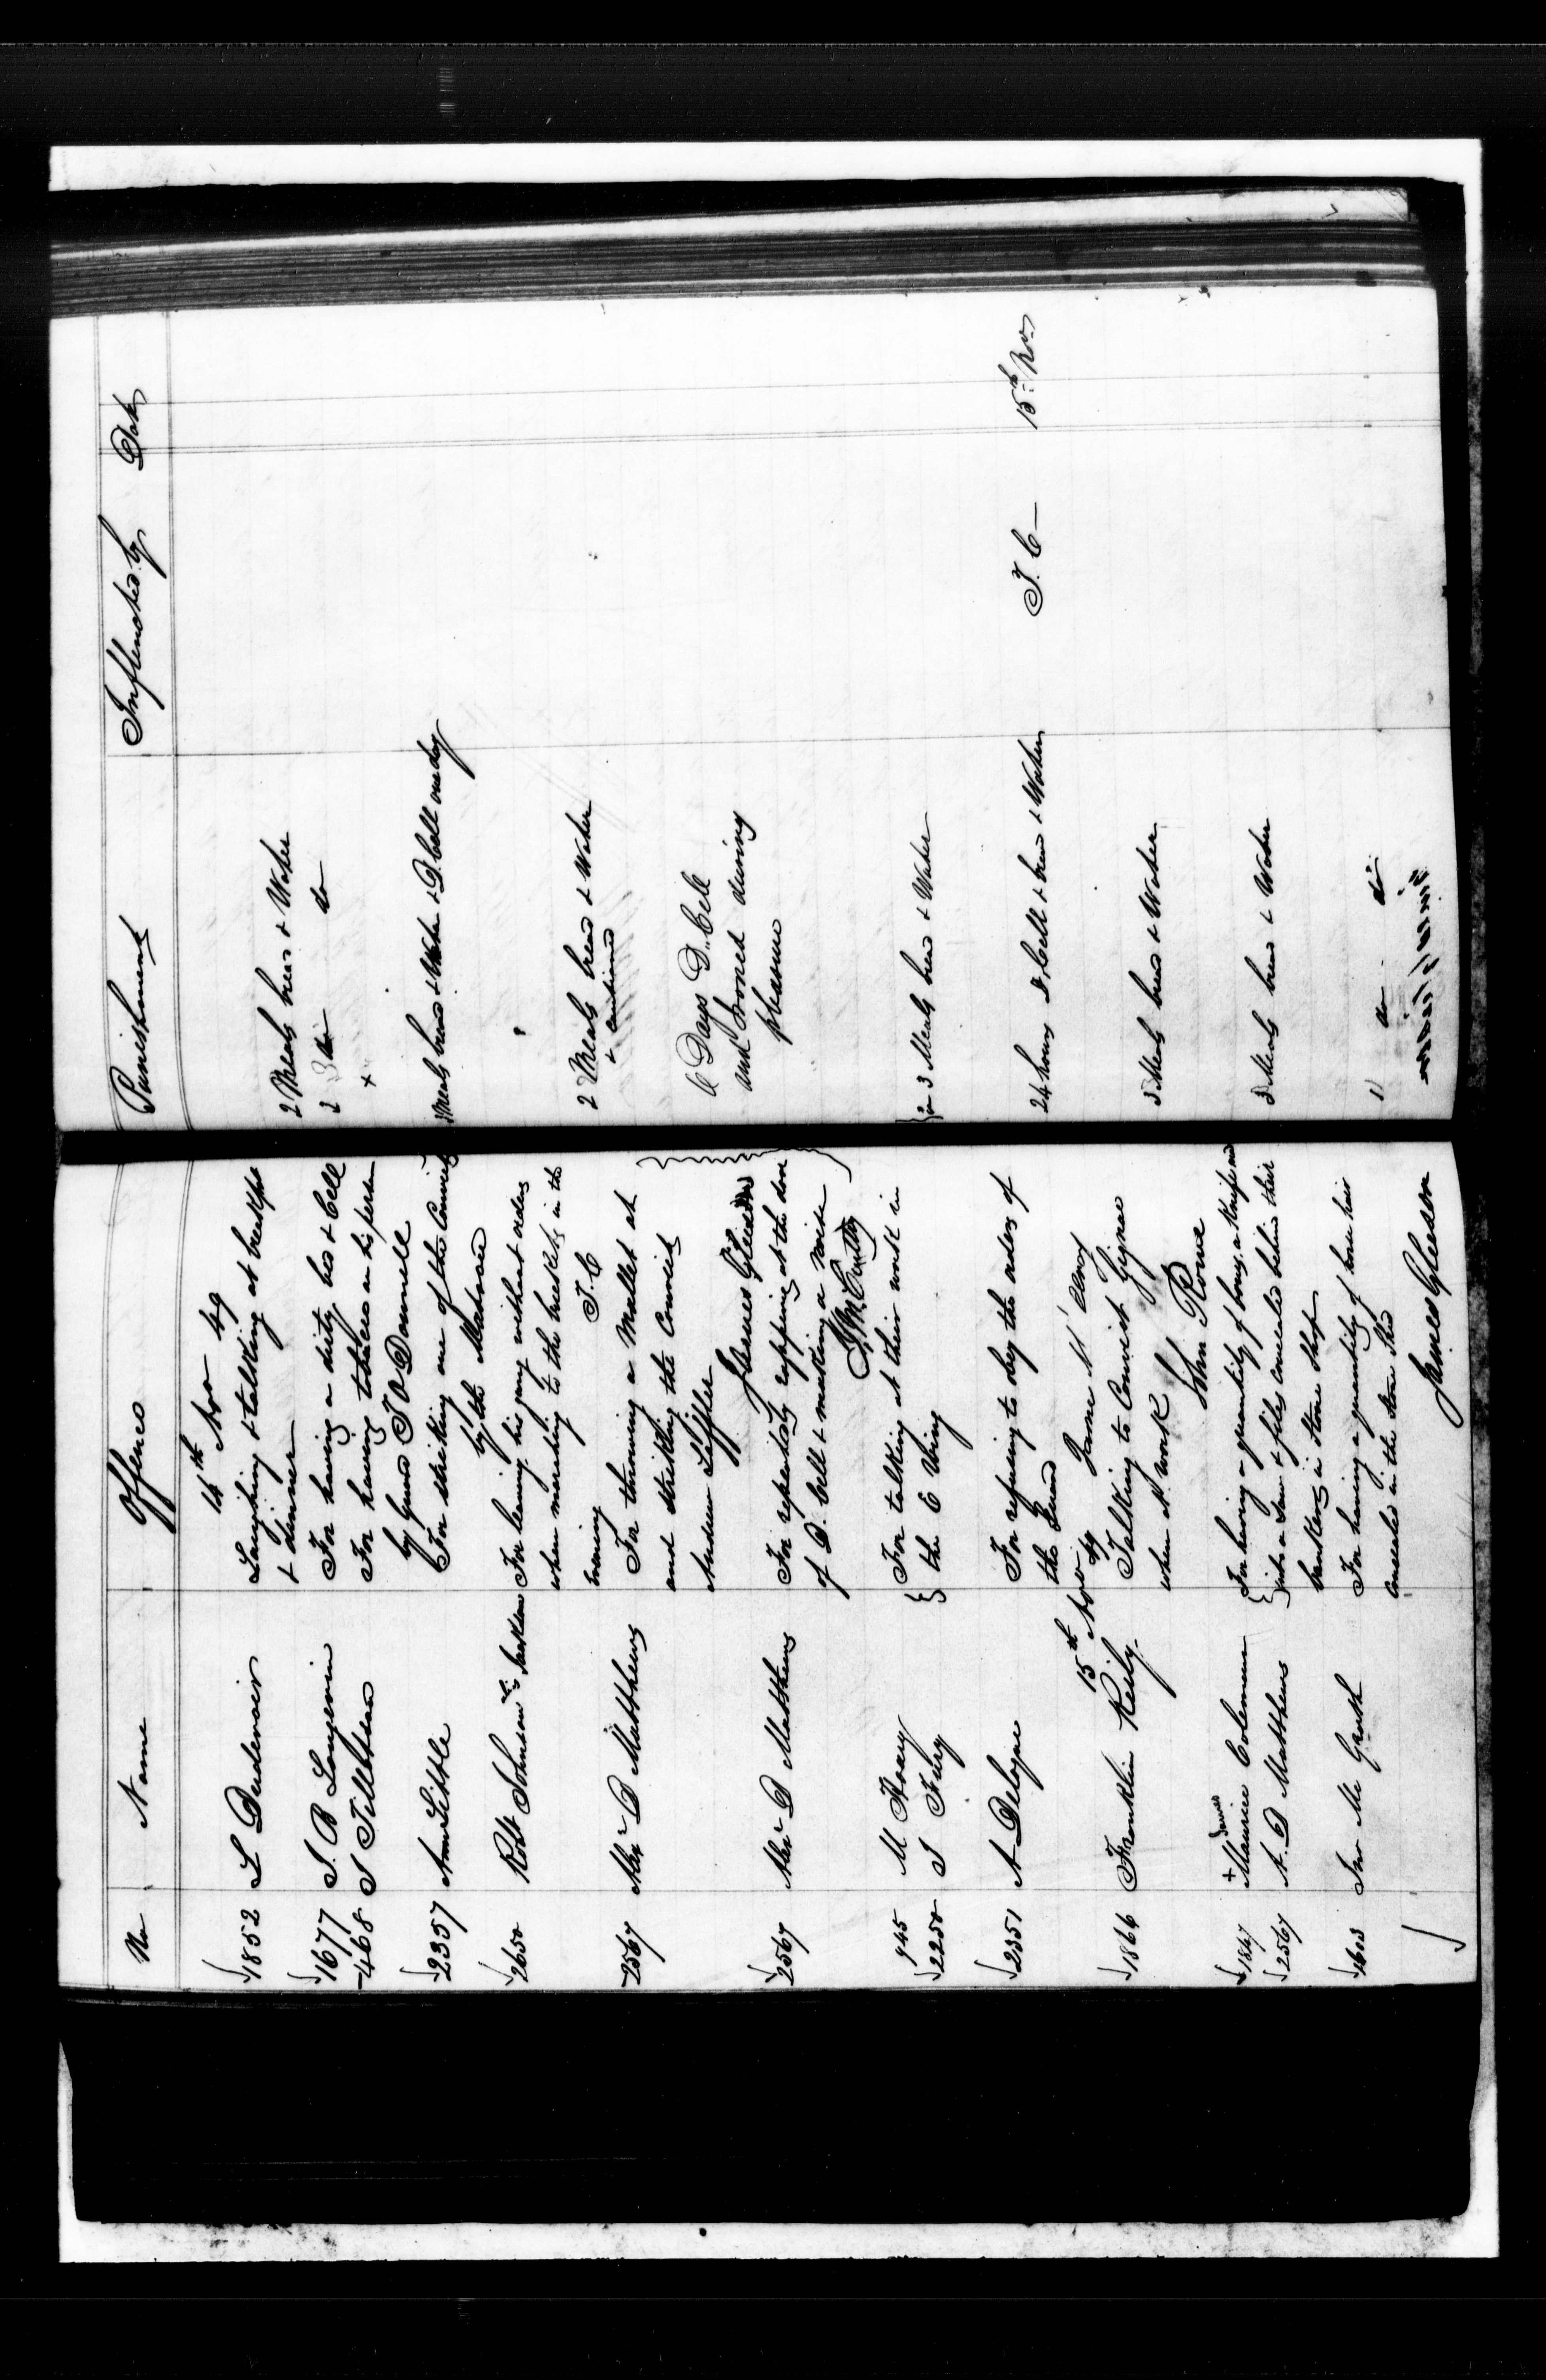 No Name Offences Punishment Inflicted by Date
14th Nov 49
1852 L Duderoir Laughing & talking at breakfast
& dinner 2 Meals bread & Water
1677 J. B Langevin For having a dirty bed & Cell 2 do do
468 J Tillotson For having tobacco on his person
by Guard T O Donnell
2357 Ann Little For striking one of the Convicts Meals bread & Water & D. Cell one day
by the Matron
2650 Robt Johnson For leaving his gang without orders
when marching to the breakfast in the
evening T. C 2 Meals bread & Water
2567 Alexr D Matthews For throwing a Mallet at
and striking the Convict
Andrew Leffler James Gleeson 6 Days D. Cell
and ironed during
pleasure
2567 Alexr D Matthews For repeatedly rapping at the door
of D. Cell & making a noise
945 M Hoary For talking at their work in 3 Meals bread & Water
2250 J Furey the E Wing
2351 A Deloge For refusing to obey the orders of 24 hours D. Cell & bread & Water T. C — 15th Nov
the Guard
15th Nov 49
1866 Franklin Reily Talking to Convict Gignac 3 Meals bread & Water
when at work John Rowe
1847 + Maurice Coleman For having a quantity of bones, a Knife and
2567 A. D Matthews a Saw & files concealed behind their 3 Meals bread & Water
bunkers in Stone Shop
1603 Jno Mc Grath For having a quantity of horse hair 1) do do
concealed in the Stone Shed
James Gleeson